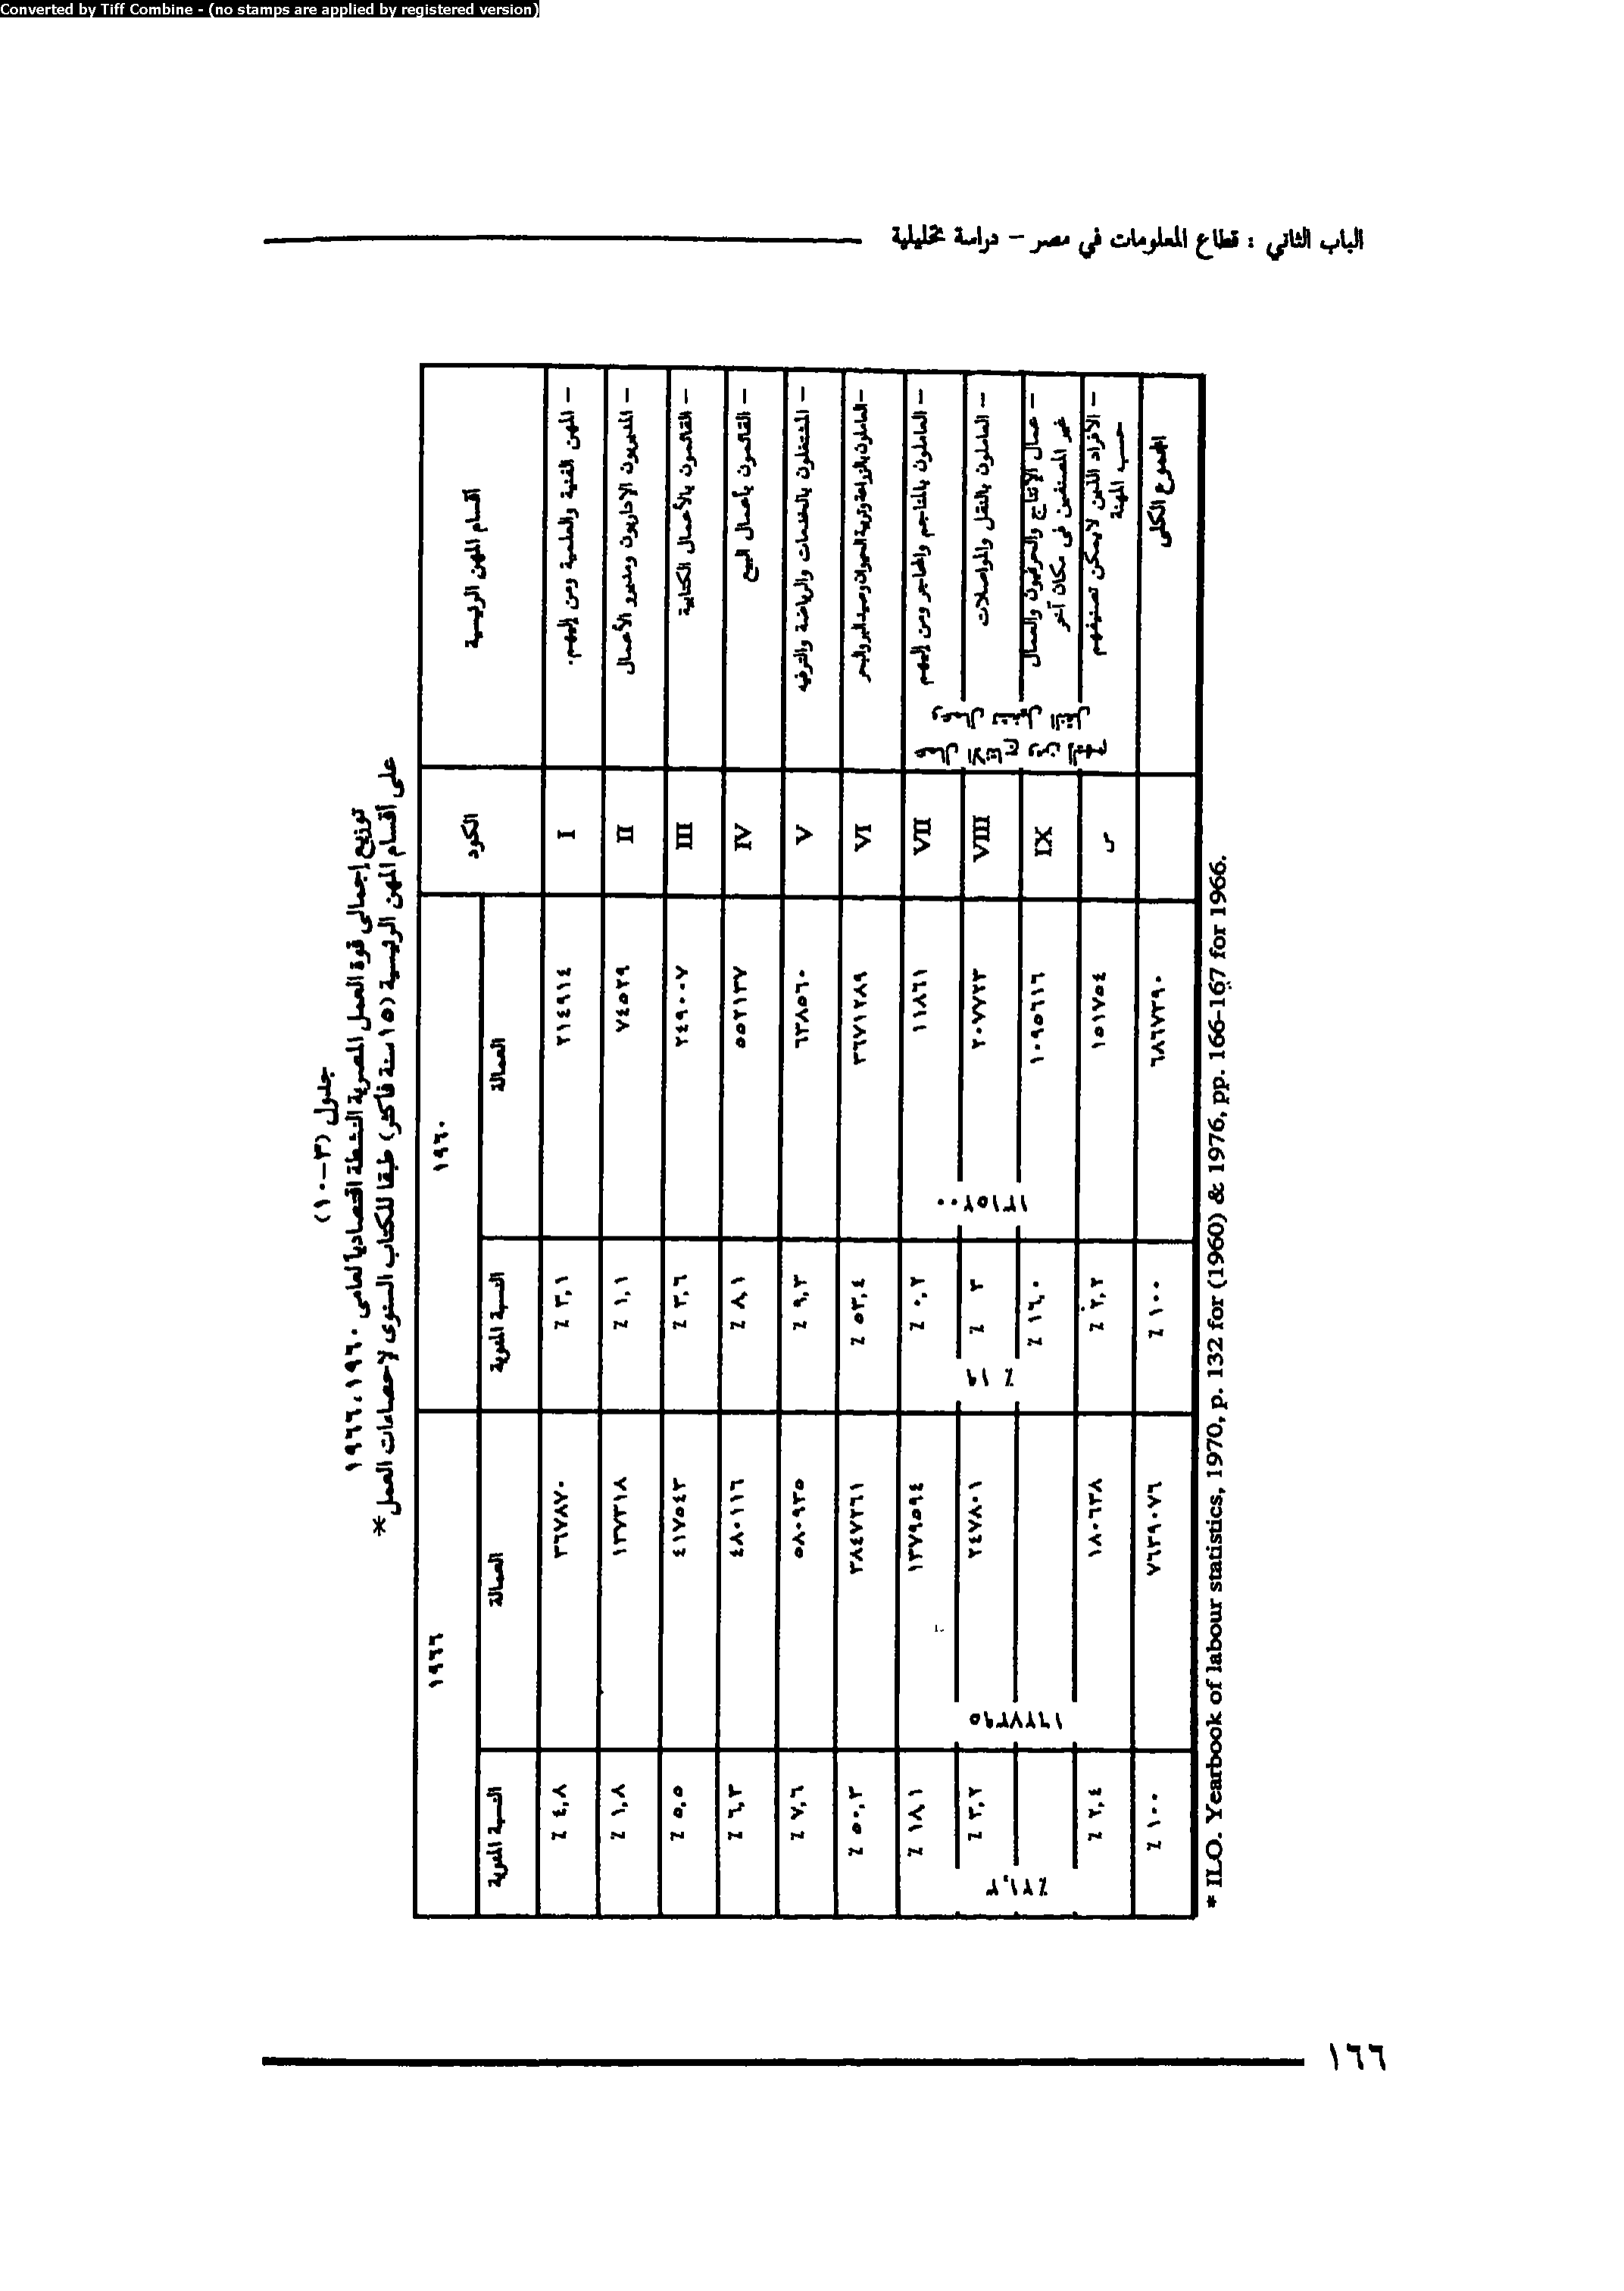 Converted by Tiff Combine - (no stamps are applied by registered version)
الباب الثاني : قطاع المعلومات في مصر – دراسة تحليلية
جدول (٣–١٠)
توزيع إجمالى قوة العمل المصرية النشطة اقتصادياً لعامى ١٩٦٠، ١٩٦٦
على أقسام المهن الرئيسية (١٥ سنة فأكثر) طبقا للكتاب السنوى لاحصاءات العمل*
أقسام المهن الرئيسية الكود ١٩٦٠ ١٩٦٦
العمالة النسبة المئوية العمالة النسبة المئوية
– المهن الفنية والعلمية ومن إليهم. I ٢١٤٩١٤ ٣,١ ٪ ٣٦٧٨٧٠ ٤,٨ ٪
– المديريون الاداريون ومديرو الأعمال II ٧٤٥٢٩ ١,١ ٪ ١٣٧٣١٨ ١,٨ ٪
– القائمون بالأعمال الكتابية III ٢٤٩٠٠٧ ٣,٦ ٪ ٤١٧٥٤٣ ٥,٥ ٪
– القائمون بأعمال البيع IV ٥٥٢١٣٧ ٨,١ ٪ ٤٨٠١١٦ ٦,٣ ٪
– المشتغلون بالخدمات والرياضة والترفيه V ٦٣٨٥٦٠ ٩,٣ ٪ ٥٨٠٩٣٥ ٧,٦ ٪
– العاملون بالزراعة وتربية الحيوان وصيد البر والبحر VI ٣٦٧١٢٨٩ ٥٣,٤ ٪ ٣٨٤٧٢٦١ ٥٠,٣ ٪
– العاملون بالمناجم والمحاجر ومن إليهم VII ١١٨٦١ ٠,٢ ٪ ١٣٧٩٥٩٤ ١٨,١ ٪
– العاملون بالنقل والمواصلات VIII ٢٠٧٧٢٣ ٣ ٪ ٢٤٧٨٠١ ٣,٢ ٪
– عمال الإنتاج والحرفيون والعمال
غير المصنفين فى مكان آخر IX ١٠٩٥٦١٦ ١٦,٠ ٪
١٣١٥٢٠٠ ١٩ ٪ ١٦٢٧٣٩٥ ٢١,٣٪
– الأفراد الذين لا يمكن تصنيفهم
حسب المهنة س ١٥١٧٥٤ ٢,٢ ٪ ١٨٠٦٣٨ ٢,٤ ٪
المجموع الكلى ٦٨٦٧٣٩٠ ١٠٠ ٪ ٧٦٣٩٠٧٦ ١٠٠ ٪
* ILO. Yearbook of labour statistics, 1970, p. 132 for (1960) & 1976, pp. 166-167 for 1966.
١٦٦